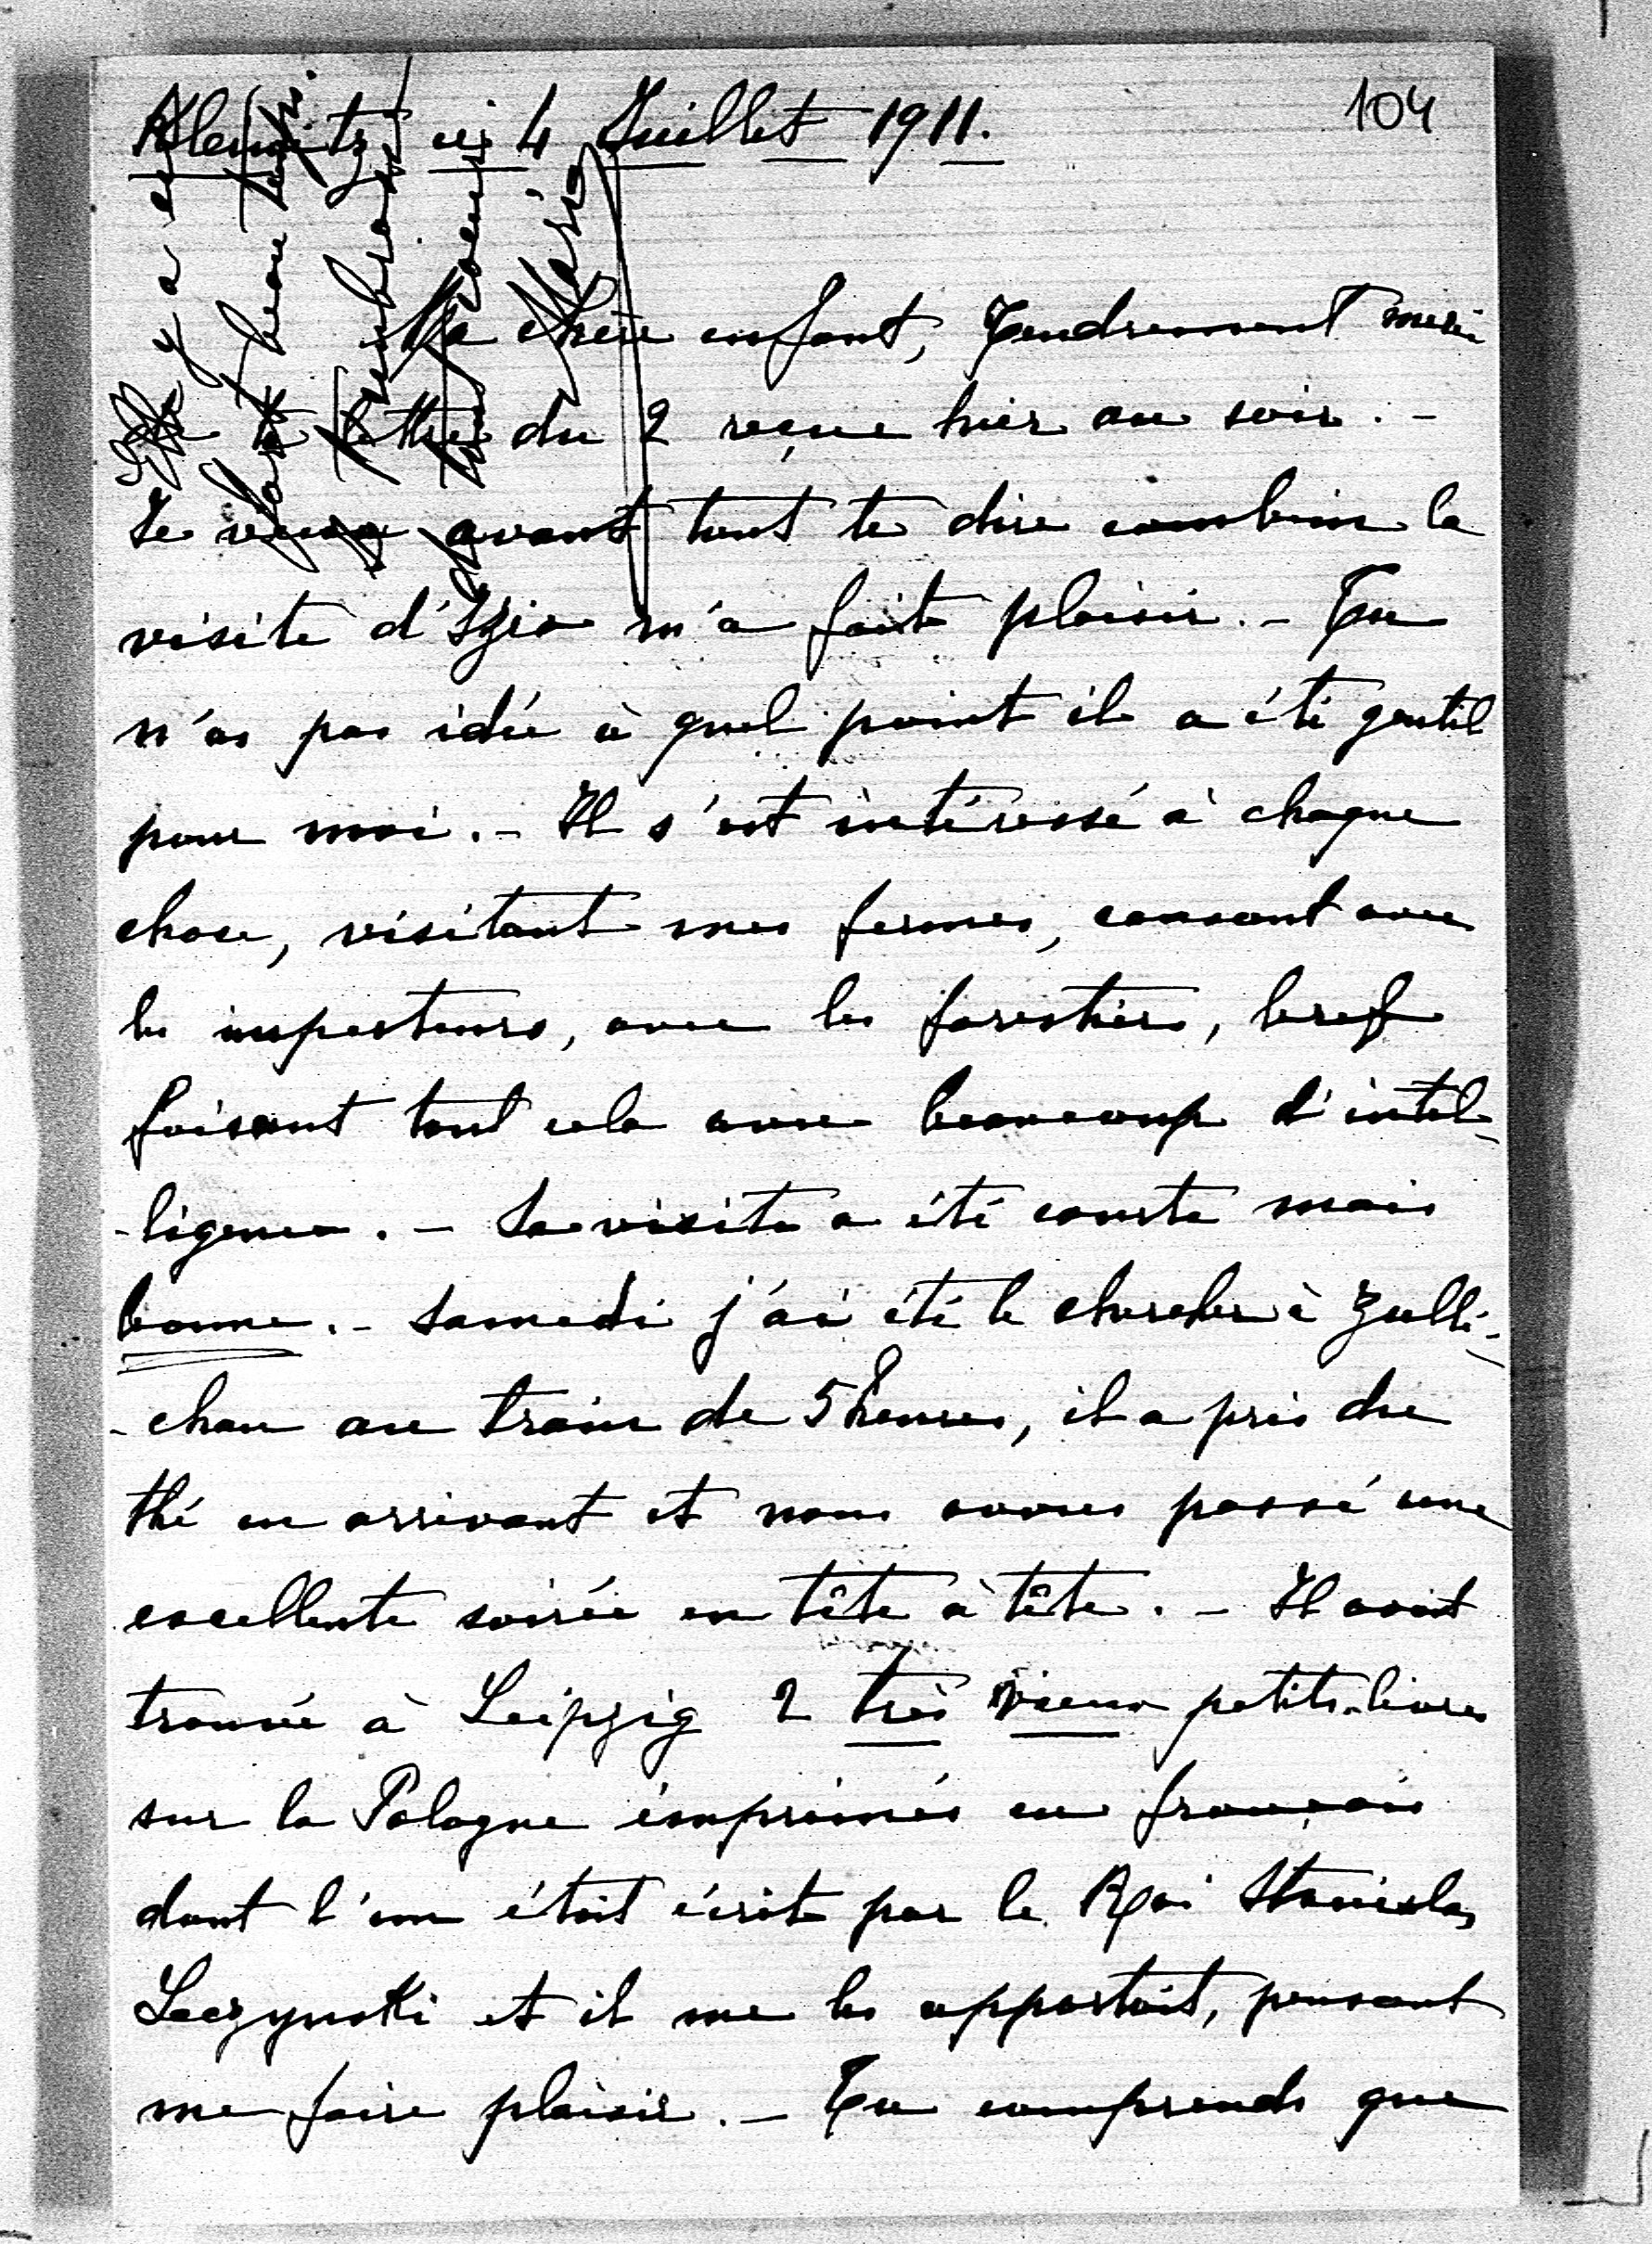 104
Klenitz, ci 4 Juillet 1911.
Ma chère enfant, Tendrement merci
de ta lettre du 2 reçue hier au soir. -
Je veux avant tout te dire combien la
visite d'Izio m'a fait plaisir. - Tu
n'as pas idée à quel point il a été gentil
pour moi. - Il s'est intéressé à chaque
chose, visitant mes fermes, causant avec
les inspecteurs, avec les forestiers, bref
faisant tout cela avec beaucoup d'intel-
-ligence. - Sa visite a été courte mais
bonne. - Samedi j'ai été le chercher à Zulli-
-chau au train de 5 heures, il a pris du
thé en arrivant et nous avons passé une
excellente soirée en tête à tête. - Il avait
trouvé à Leipzig 2 très vieux petits livres
sur la Pologne imprimés en français
dont l'un était écrit par le Roi Stanislas
Leczynski et il me les apportait, pensant
me faire plaisir. - Tu comprends que